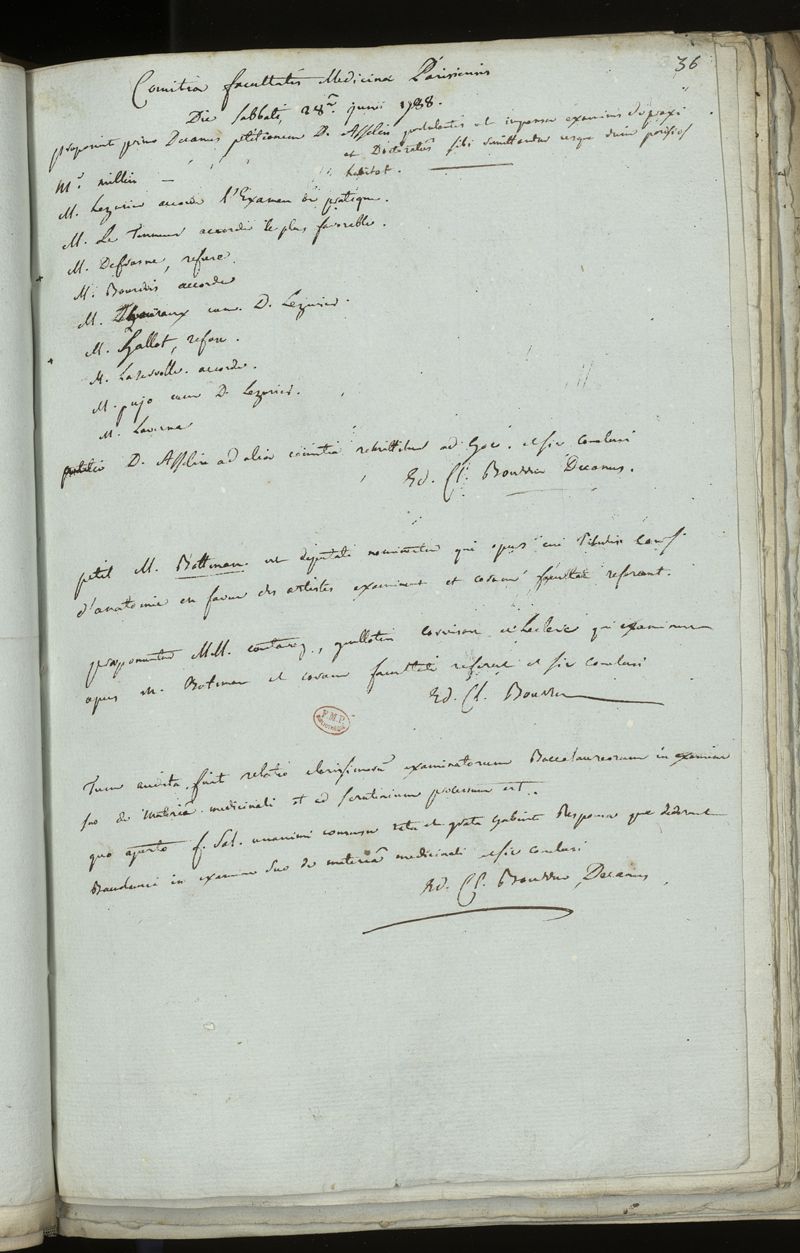 36
Comitia facultatis Medicinæ Parisiensis
Die Sabbati, 28ª junii 1788.
proponit primo Decanus petitionem D. Asselin postulantis ut impensæ examinis de praxi
et Doctoratûs sibi dimittantur usque dum parisios
habitet.
Mr. millin —
M. Lezurier accorde l'Examen de pratique.
M. Le Tenneur accorde le plus favorable.
M. Defrasne, refuse.
M. Bourdois accorde
M. Thouraux cum D. Lezurier.
M. Hallot, refuse.
M. Laservolle. accorde.
M. pujo cum D. Lezurier.
M. Laverne
petitio D. Asselin ad alia comitia remittitur ad hoc. et sic conclusi
Ed. Cl. Bourru Decanus.
petit M. Bottman ut deputati nominentur qui opus cui titulus Cours
d'anatomie en faveur des artistes examinent et coram facultate referant.
proponuntur MM. coutavoz, guillotin corvisart et Leclerc qui examinent
opus M. Botman et coram facultate referent et sic conclusi
Ed. Cl. Bourru
F.M.P.
Tum audita fuit relatio clarissimorum examinatorum Baccalaureorum in examine
suo de materiâ medicinali et ad scrutinium processum est.
quo aperto f. Sal. unanimi consensu rata et grata habuit Responsa quæ dederunt
Baudanii in examine suo de materiâ medicinali et sic conclusi
Ed. Cl. Bourru, Decanus